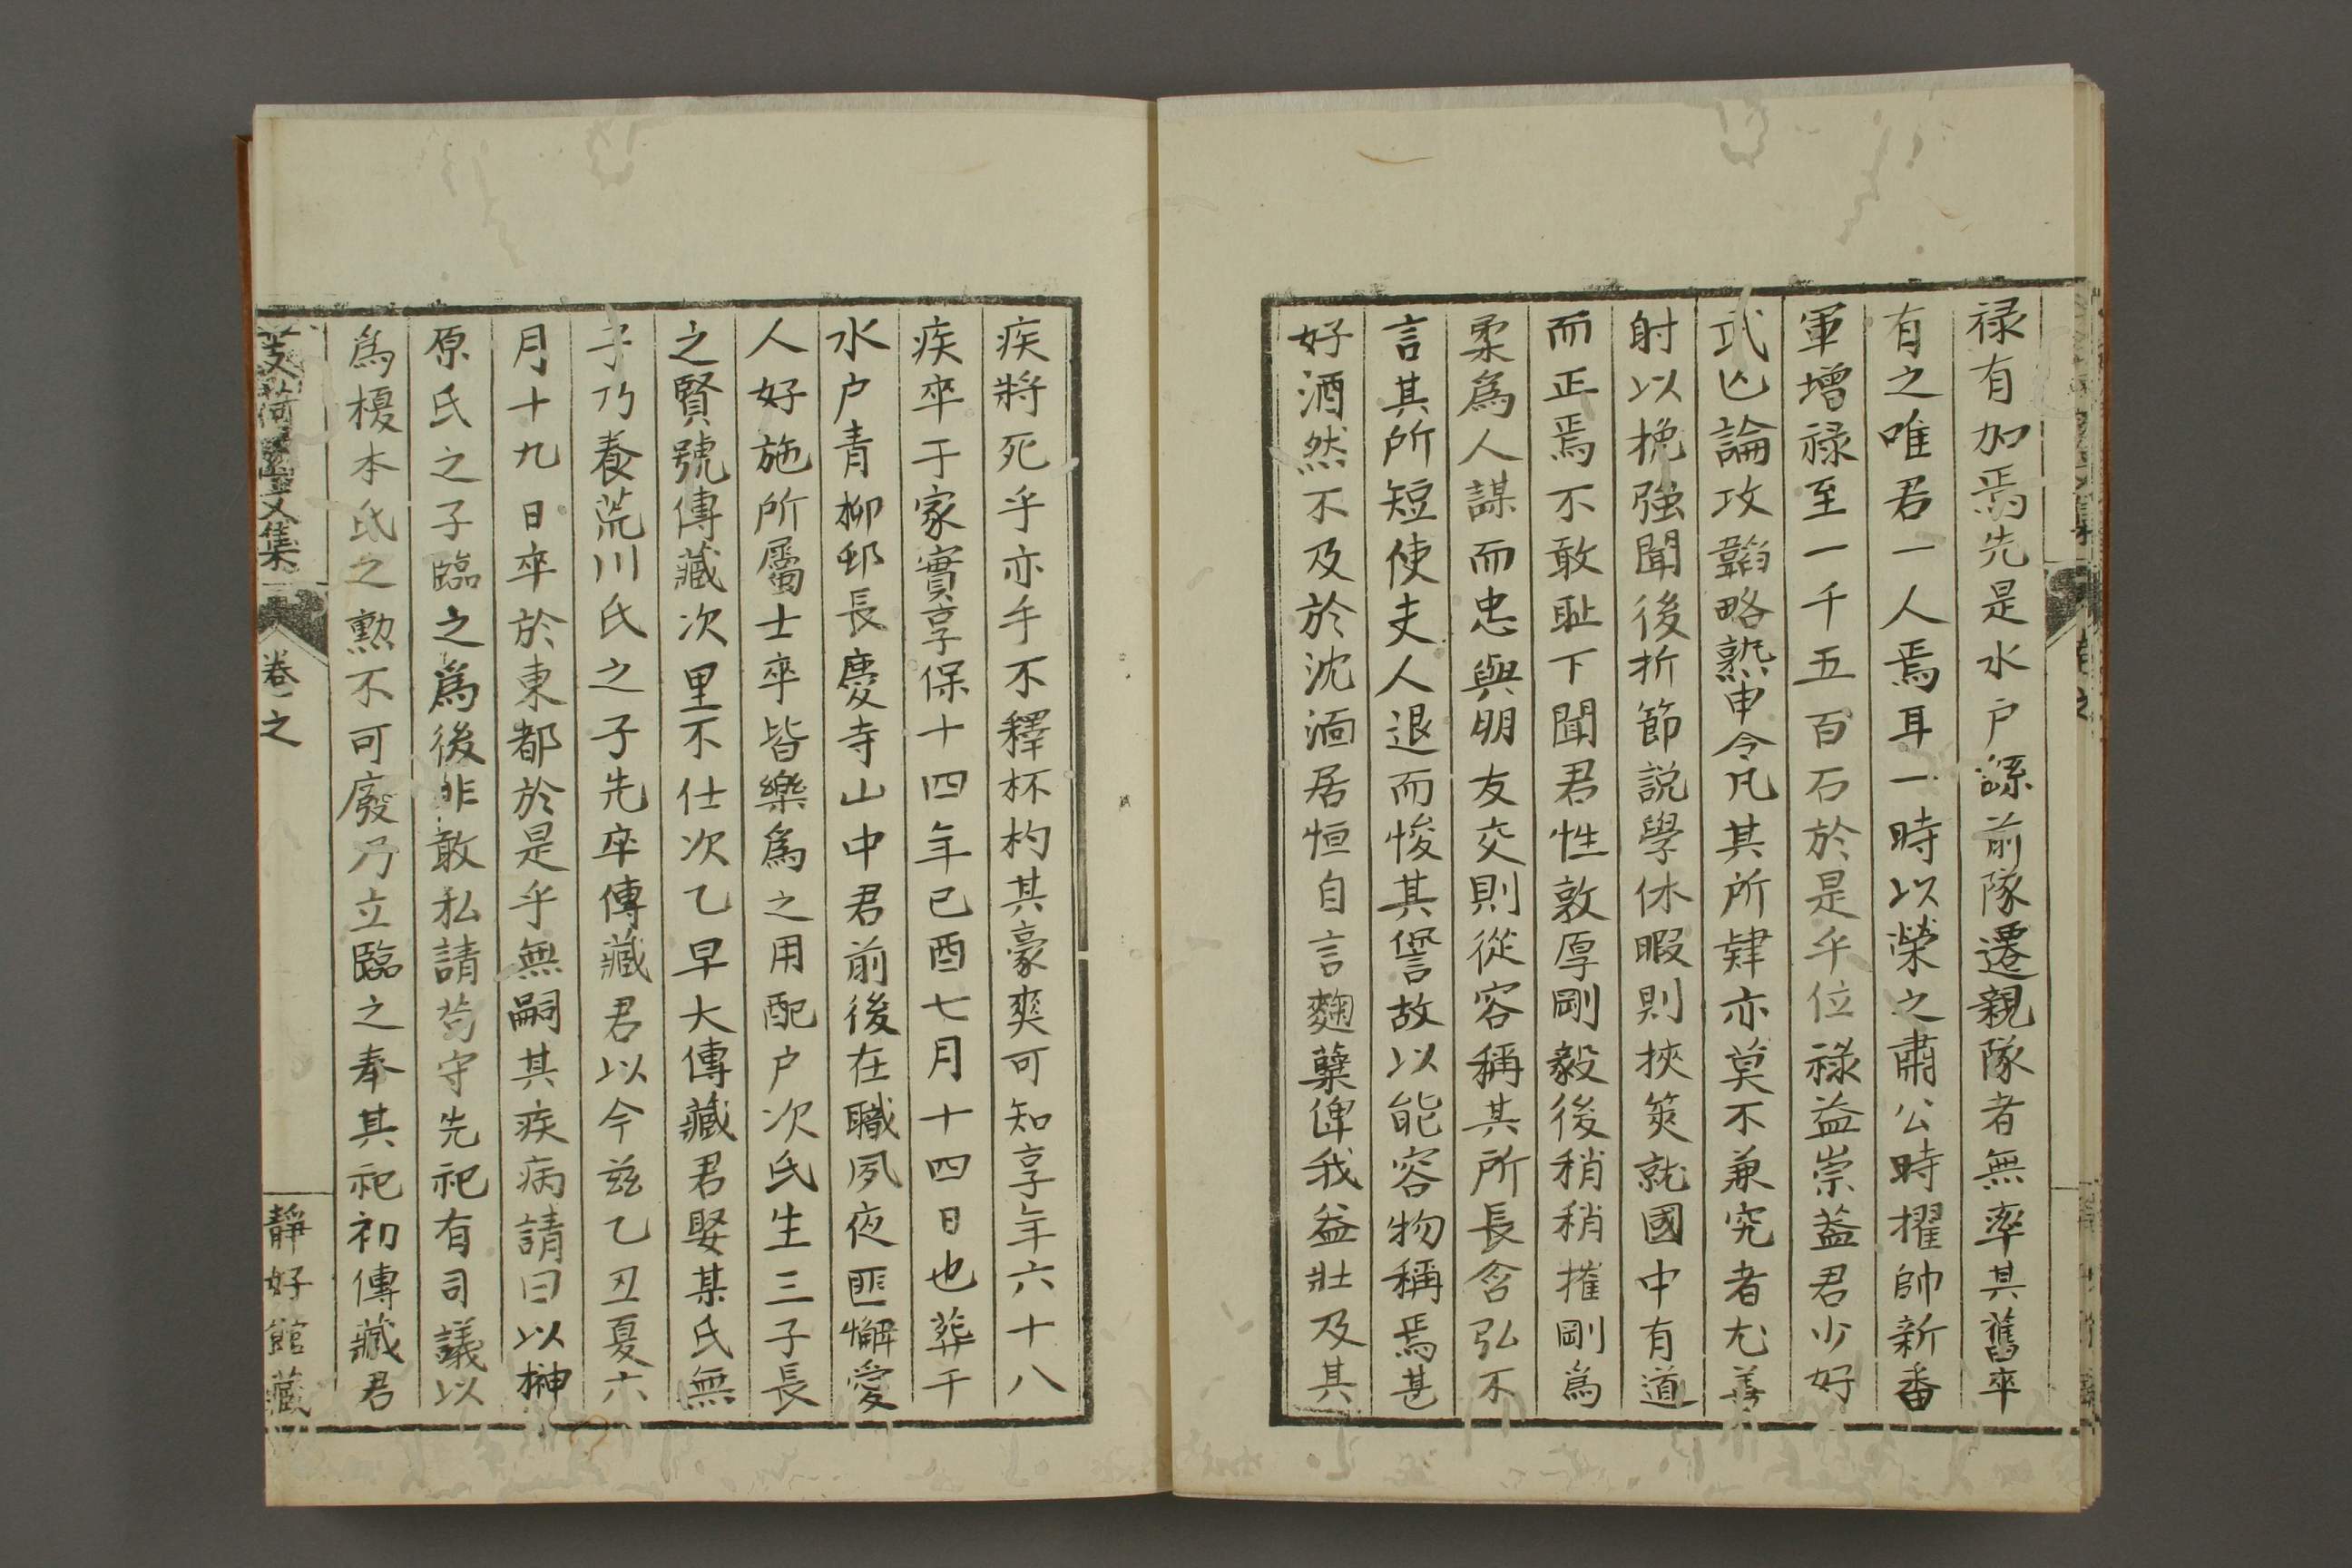 禄有加焉先是水戸繇前隊遷親隊者無率其舊卒
有之唯君一人焉耳一時以榮之肅公時擢帥新番
軍增禄至一千五百石於是乎位祿益崇蓋君少好
武凸論攻韜略熟申令凡其所肄亦莫不兼究者尤善
射以挽強聞後折節說學休暇則挾筴就國中有道
而正焉不敢耻下聞君性敦厚剛毅後稍稍摧剛為
柔為人謀而忠與朋友交則從容稱其所長含弘不
言其所短使夫人退而悛其諐故以能容物稱焉甚
好酒然不及於沈湎居恒自言麴糵俾我益壯及其
疾將死乎亦手不釋杯杓其豪爽可知享年六十八
疾卒于家實享保十四年己酉七月十四日也葬于
水户青柳邨長慶寺山中君前後在職夙夜匪懈愛
人好施所屬士卒皆樂為之用配户次氏生三子長
之賢號傳藏次里不仕次乙早夭傳藏君娶某氏無
子乃養荒川氏之子先卒傳藏君以今茲乙丑夏六
月十九日卒於東都於是乎無嗣其疾病請曰以榊
原氏之子臨之為後非敢私請苟守先祀有司議以
為榎本氏之勲不可廢乃立臨之奉其祀初傳藏君
芰荷園文集
卷之
靜好館藏